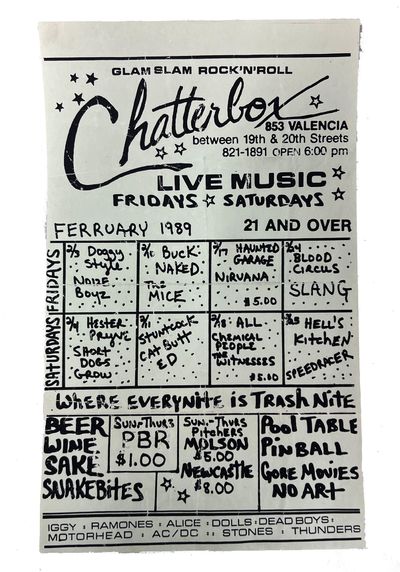 GLAM SLAM ROCK'N'ROLL
Chatterbox
853 VALENCIA
between 19th & 20th Streets
821-1891 OPEN 6:00 pm
LIVE MUSIC
FRIDAYS ☆ SATURDAYS
FERRUARY 1989
21 AND OVER
FRIDAYS
2/3 Doggy
Style
NOIZE
Boyz
BUCK
NAKED
The
MICE
2/17 HAUNTED
GARAGE
NIRVANA
$5.00
BLOOD
CIRCUS
SLANG
SATURDAYS
2/4 HESTER
PRYNE
SHORT
DOGS
GROW
STUNTCOCK
CAT BUTT
ED
2/18 ALL
CHEMICAL
PEOPLE
THE
WITNESSES
$5.00
HELL'S
KITCHEN
SPEEDRACER
WHERE EVERYNITE is TRASH NITE
BEER
WINE
SAKE
SNAKEBITES
SUN-THURS
PBR
$1.00
SUN.-THURS
Pitchers
MOLSON
$5.00
NEWCASTLE
$8.00
POOL TABLE
PINBALL
GORE MOVIES
NO ART
IGGY : RAMONES : ALICE : DOLLS : DEAD BOYS :
MOTORHEAD : AC/DC : STONES : THUNDERS